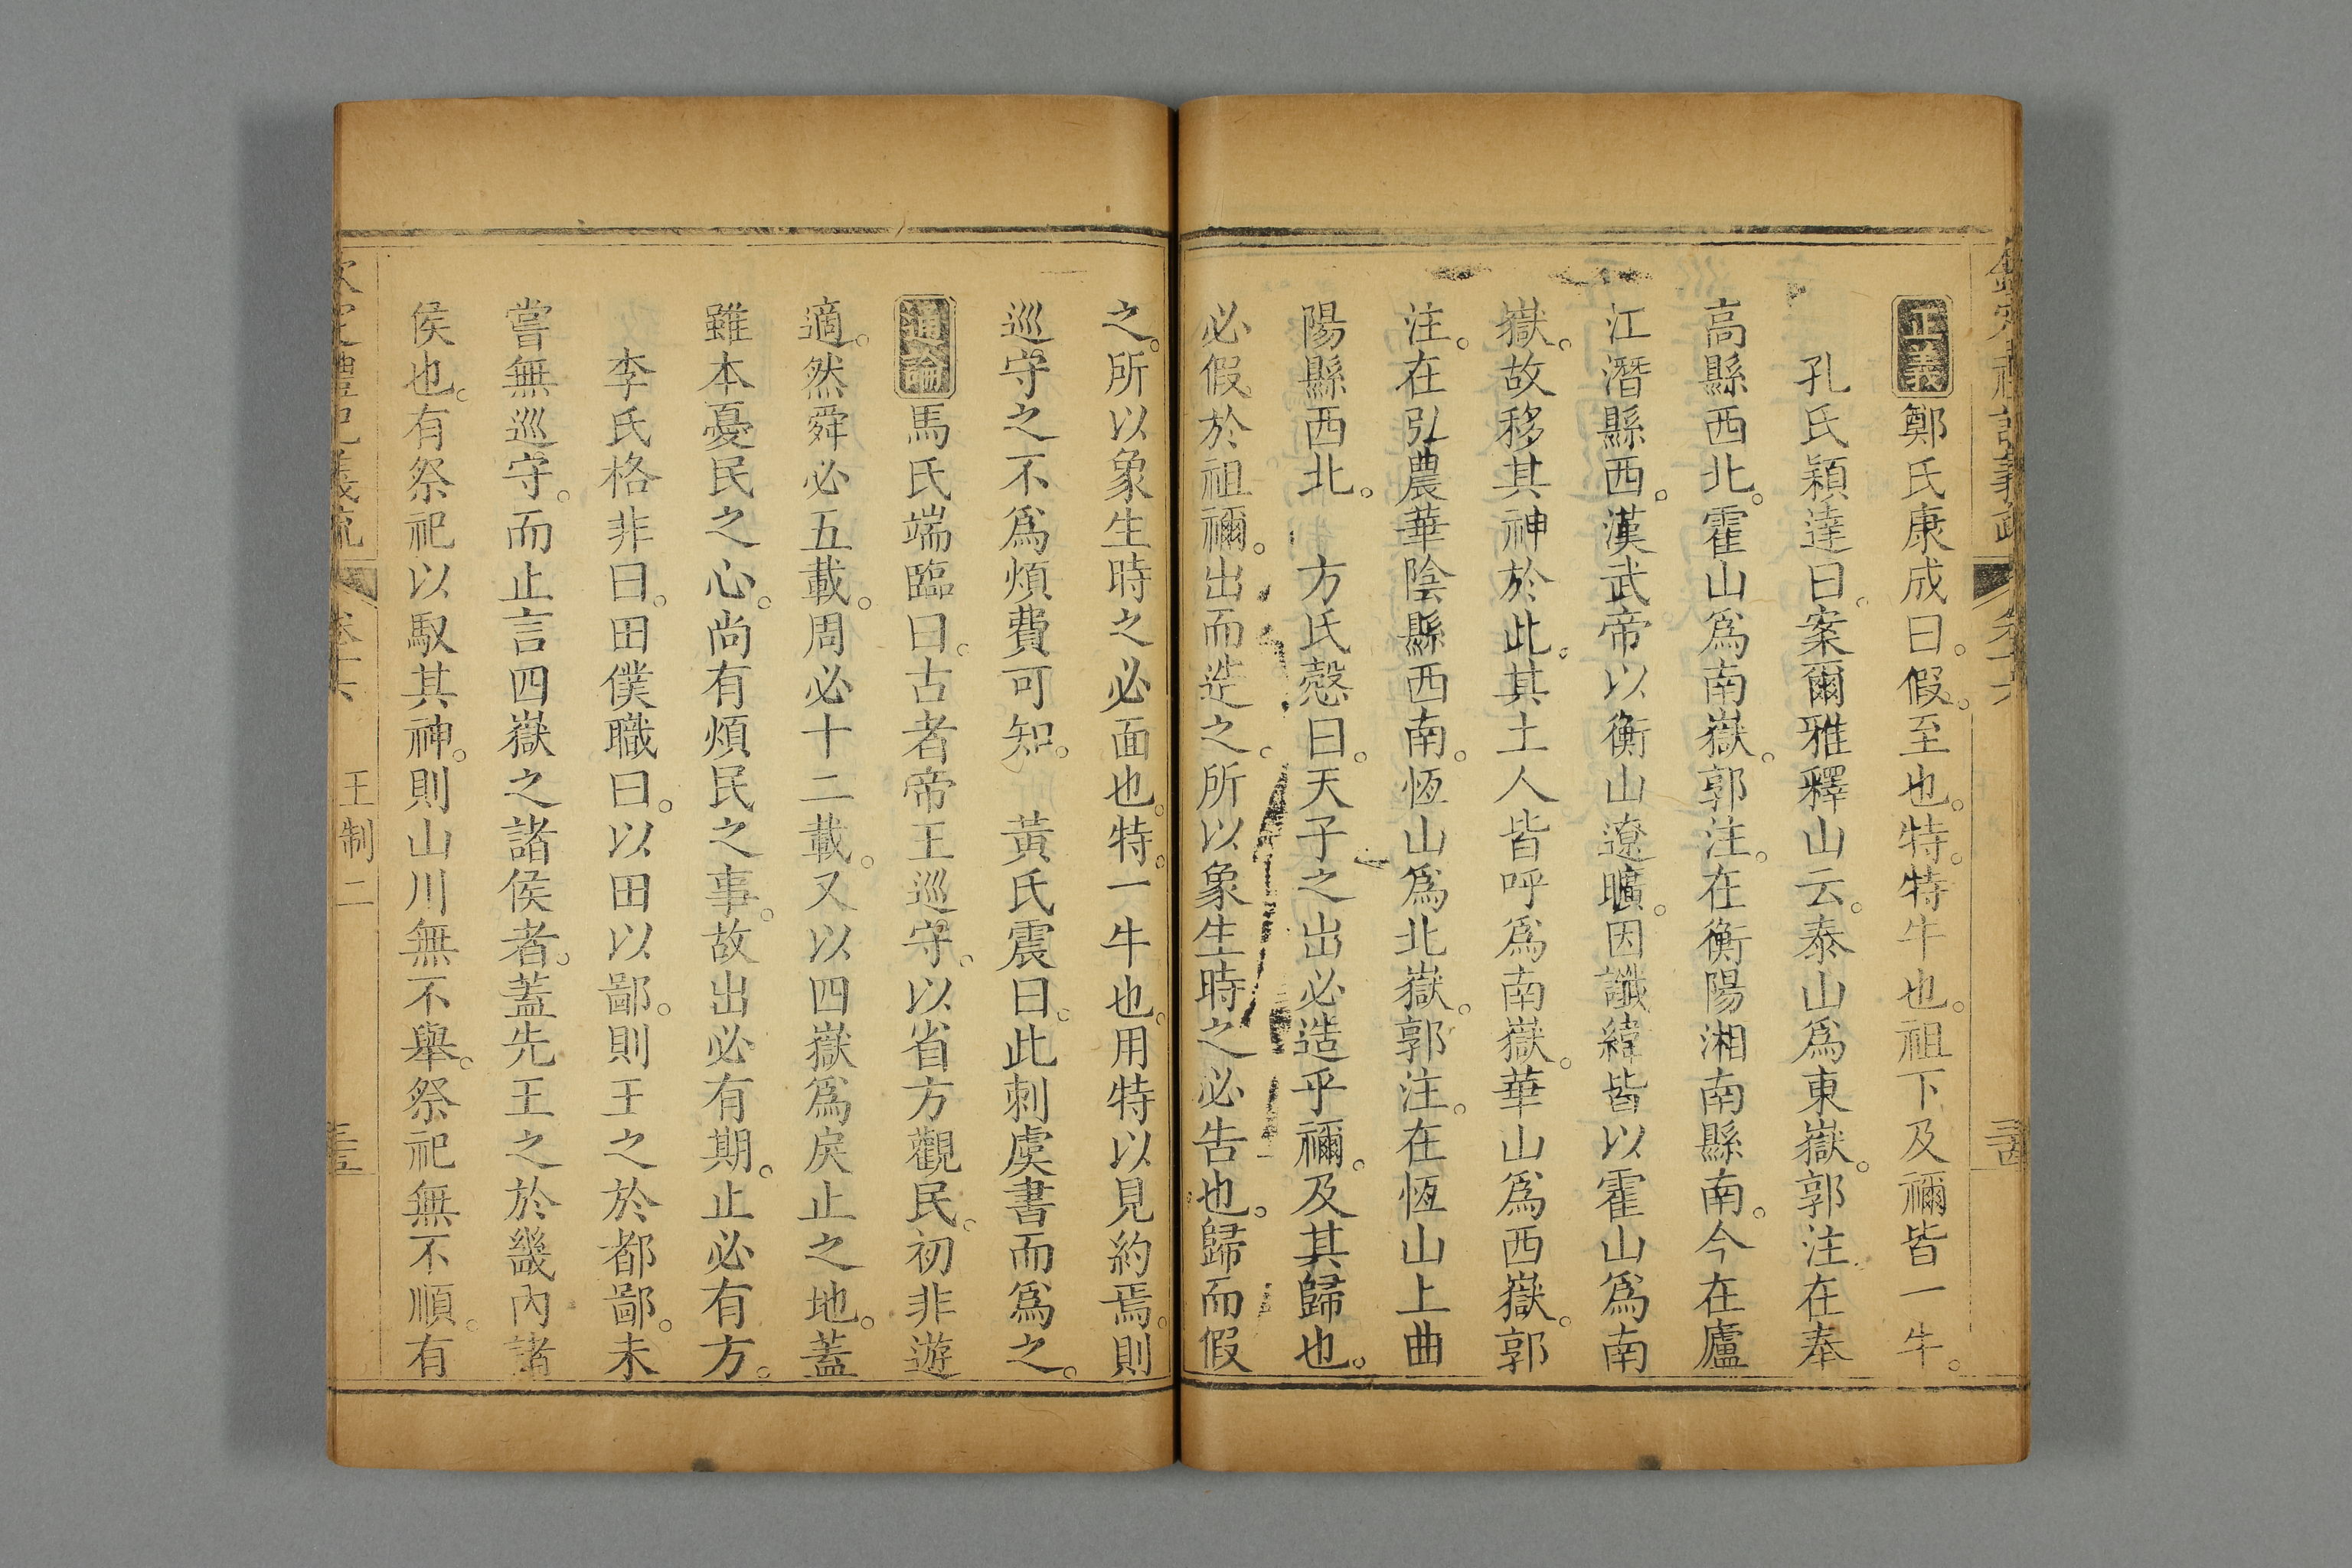 正義鄭氏康成曰。假。至也。特。特牛也。祖下及禰皆一牛。
孔氏穎達曰。案爾雅釋山云。泰山爲東嶽。郭注。在奉
高縣西北。霍山爲南嶽。郭注。在衡陽湘南縣南。今在廬
江潛縣西。漢武帝以衡山遼曠。因讖緯皆以霍山爲南
嶽。故移其神於此。其土人皆呼爲南嶽。華山爲西嶽。郭
注。在弘農華陰縣西南。恆山爲北嶽。郭注。在恆山上曲
陽縣西北。方氏慤曰。天子之出必造乎禰。及其歸也。
必假於祖禰。出而造之。所以象生時之必告也。歸而假
之。所以象生時之必面也。特。一牛也。用特以見約焉。則
巡守之不爲煩費可知。黃氏震曰。此刺虞書而爲之。
通論馬氏端臨曰。古者帝王巡守。以省方觀民。初非遊
適。然舜必五載。周必十二載。又以四嶽爲戾止之地。蓋
雖本憂民之心。尚有煩民之事。故出必有期。止必有方。
李氏格非曰。田僕職曰。以田以鄙。則王之於都鄙。未
嘗無巡守。而止言四嶽之諸侯者。蓋先王之於畿內諸
侯也。有祭祀以馭其神。則山川無不舉。祭祀無不順。有
王制二